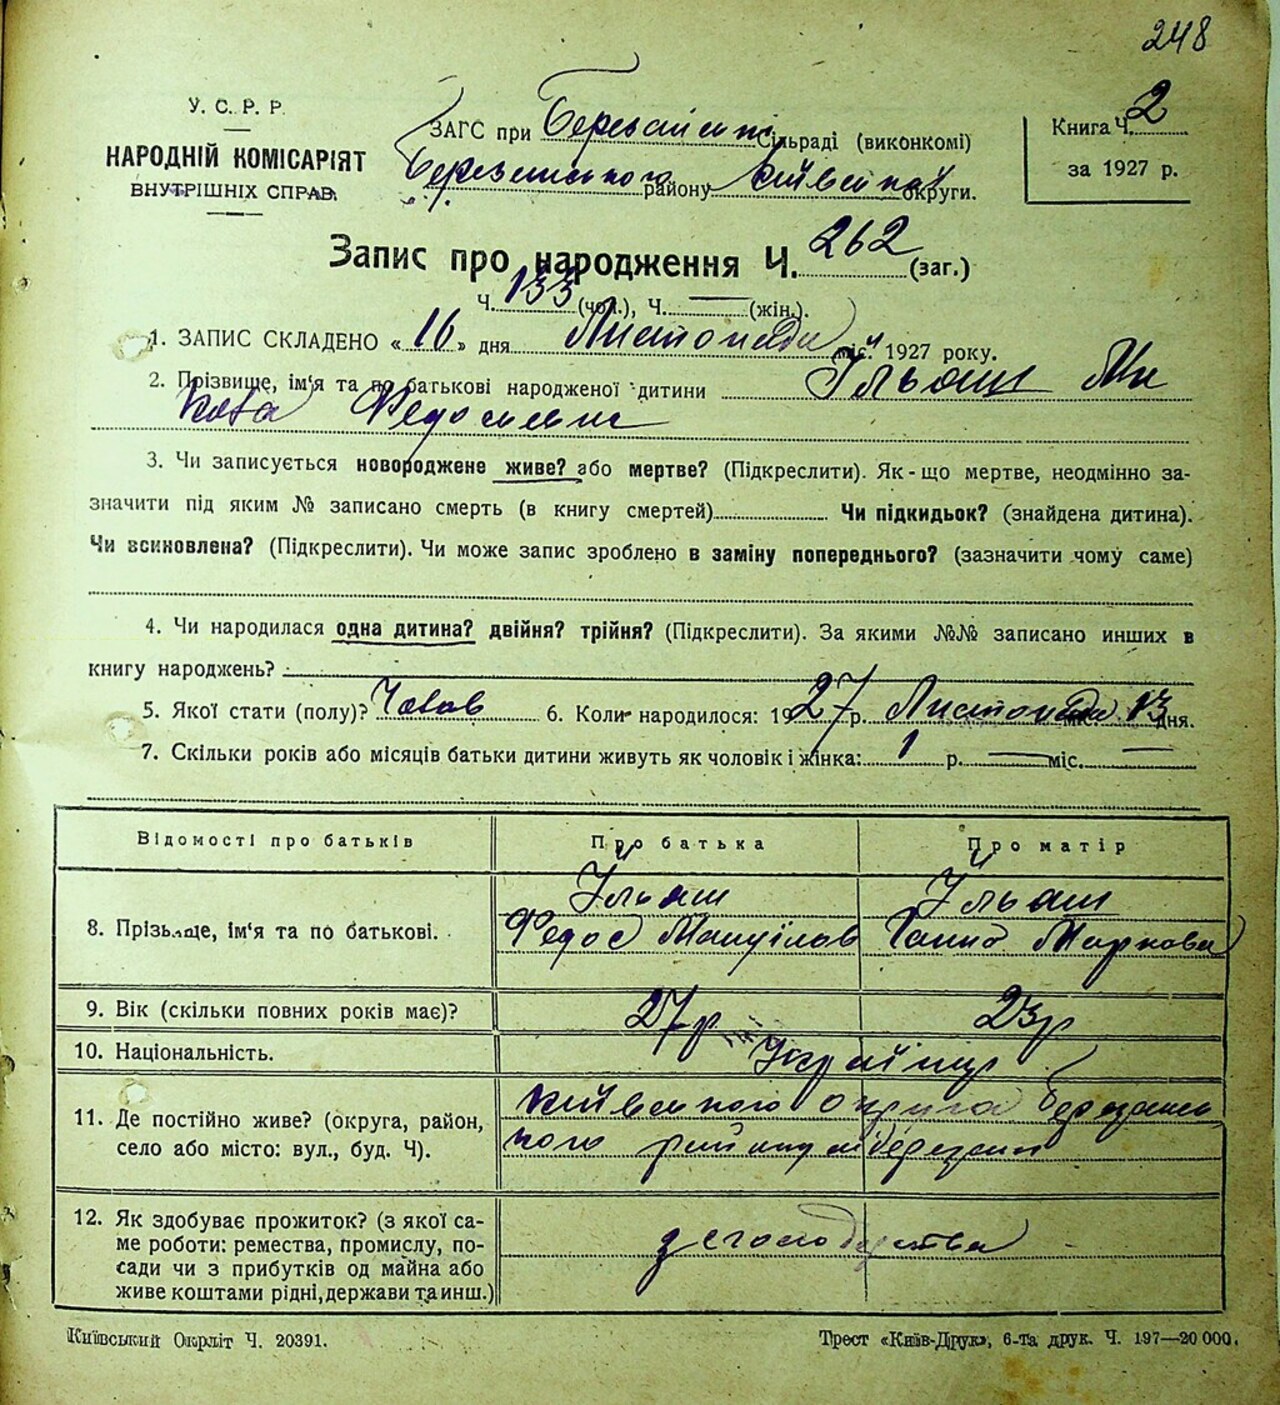 248
У. С. Р. Р.
НАРОДНІЙ КОМІСАРІЯТ
ВНУТРІШНІХ СПРАВ.
ЗАГС при Березанські Сільраді (виконкомі)
Березанського району Київської округи.
Книга Ч. 2
за 1927 р.
Запис про народження Ч. 262 (заг.)
Ч. 133 (чол.), Ч. — (жін.).
1. ЗАПИС СКЛАДЕНО « 16 » дня Листопада міс. 1927 року.
2. Прізвище, ім'я та по батькові народженої дитини Ільяш Ми
кола Федосієвич
3. Чи записується новороджене живе? або мертве? (Підкреслити). Як-що мертве, неодмінно за-
значити під яким № записано смерть (в книгу смертей) Чи підкидьок? (знайдена дитина).
Чи всиновлена? (Підкреслити). Чи може запис зроблено в заміну попереднього? (зазначити чому саме)
4. Чи народилася одна дитина? двійня? трійня? (Підкреслити). За якими №№ записано инших в
книгу народжень?
5. Якої стати (полу)? Чолов 6. Коли народилося: 1927 р. Листопада 13 дня.
7. Скільки років або місяців батьки дитини живуть як чоловік і жінка: 1 р. — міс. —
Відомості про батьків Про батька Про матір
8. Прізвище, ім'я та по батькові. Ільяш Ільяш
Федос Мануілов Ганна Маркова
9. Вік (скільки повних років має)? 27 р 23 р
10. Національність. Українці
11. Де постійно живе? (округа, район, Київського округа Березансь
село або місто: вул., буд. Ч). кого району м Березані
12. Як здобуває прожиток? (з якої са-
ме роботи: ремества, промислу, по- з господарства
сади чи з прибутків од майна або
живе коштами рідні, держави та инш.)
Київський Окрліт Ч. 20391.
Трест «Київ-Друк», 6-та друк. Ч. 197—20 000.